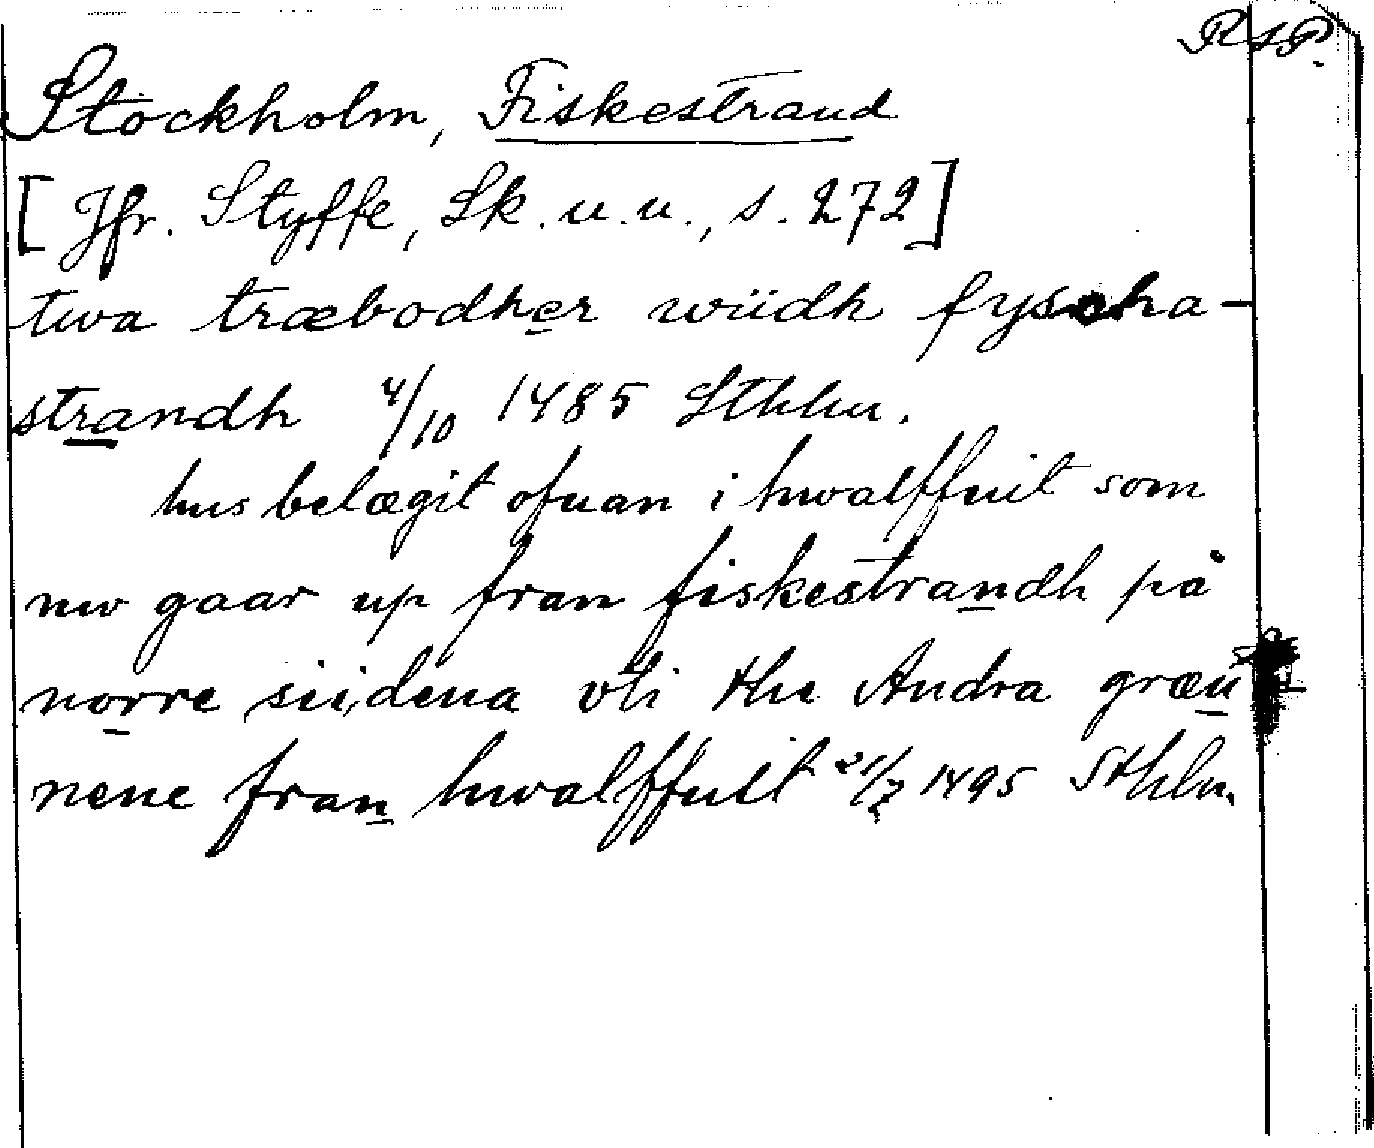 RSP.
Stockholm, Fiskestrand
[Jfr. Styffe, Sk. u. u., s. 272]
twa træbodher wiidh fyscha-
strandh 4/10 1485 Sthlm.
hus belægit ofuan i hwalffuit som
nw gaar up fran fiskestrandh på
norre siidena vti the Andra græn-
nene fran hwalffuit 21/7 1495 Sthlm.